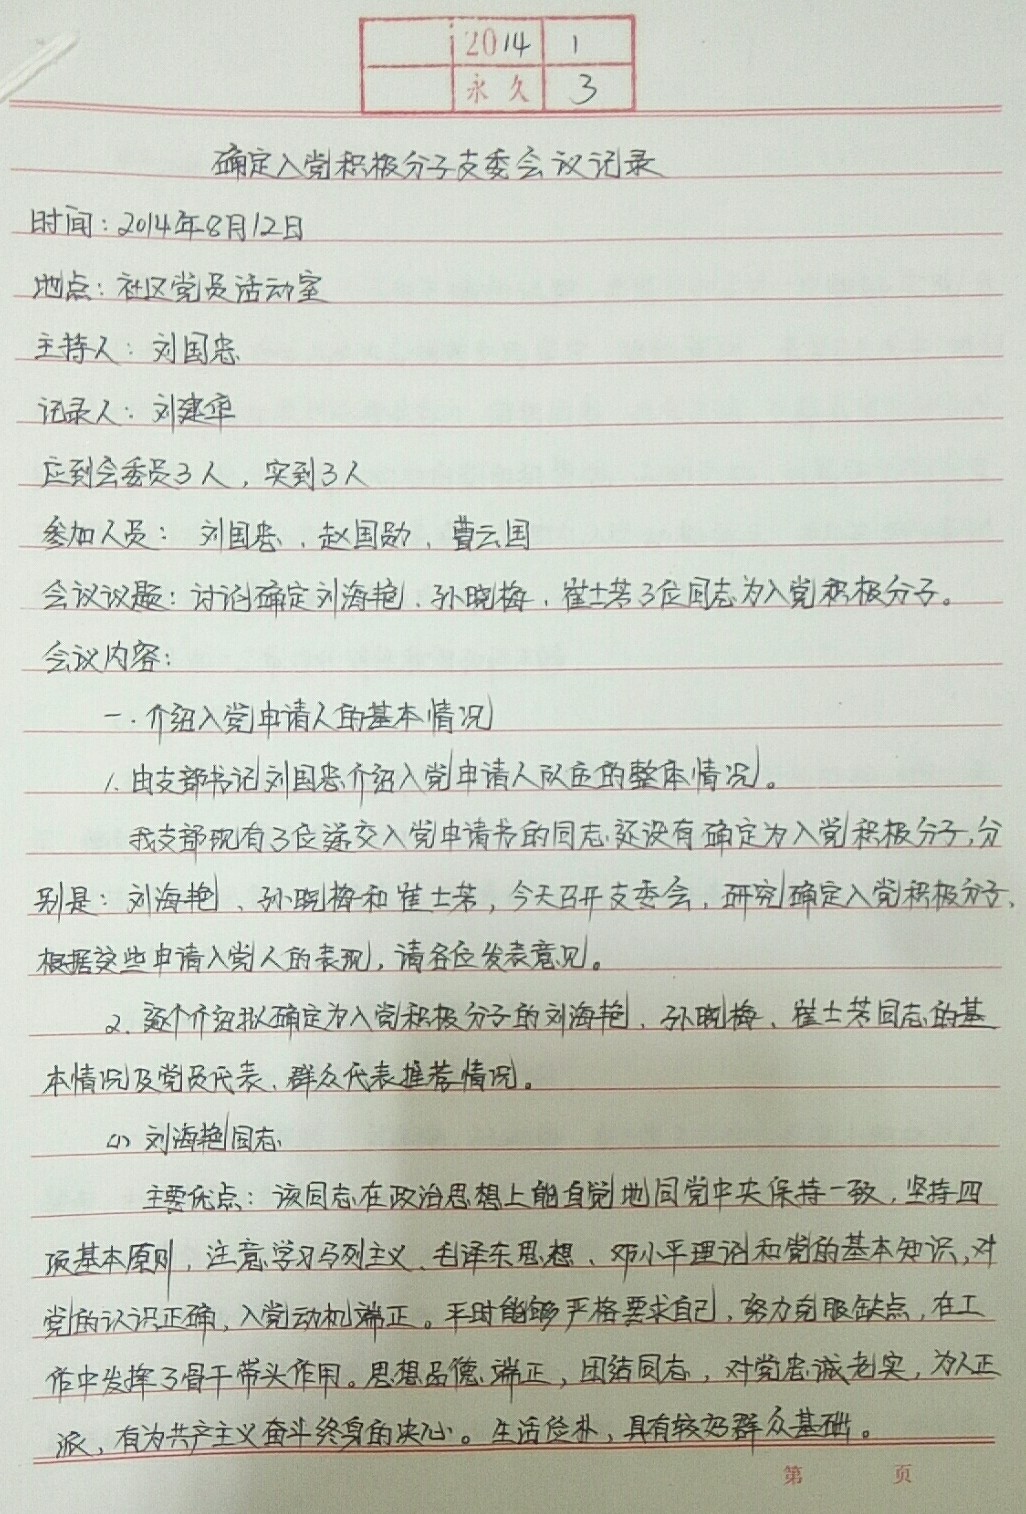 2014 1
永久 3
确定入党积极分子支委会议记录
时间：2014年8月12日
地点：社区党员活动室
主持人：刘国忠
记录人：刘建华
应到会委员3人，实到3人
参加人员：刘国忠、赵国勋、曹云国
会议议题：讨论确定刘海艳、孙晓梅、崔士芳3位同志为入党积极分子。
会议内容：
一.介绍入党申请人的基本情况
1.由支部书记刘国忠介绍入党申请人队伍的整体情况。
我支部现有3位递交入党申请书的同志还没有确定为入党积极分子,分
别是：刘海艳、孙晓梅和崔士芳，今天召开支委会，研究确定入党积极分子、
根据这些申请入党人的表现，请各位发表意见。
2.逐个介绍拟确定为入党积极分子的刘海艳、孙晓梅、崔士芳同志的基
本情况及党员代表、群众代表推荐情况。
(1)刘海艳同志
主要优点：该同志在政治思想上能自觉地同党中央保持一致，坚持四
项基本原则，注意学习马列主义、毛泽东思想、邓小平理论和党的基本知识,对
党的认识正确，入党动机端正。平时能够严格要求自己，努力克服缺点，在工
作中发挥了骨干带头作用。思想品德端正，团结同志，对党忠诚老实，为人正
派，有为共产主义奋斗终身的决心。生活俭朴，具有较好群众基础。
第 页